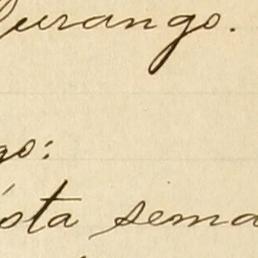 Durango.
go:
ésta sema